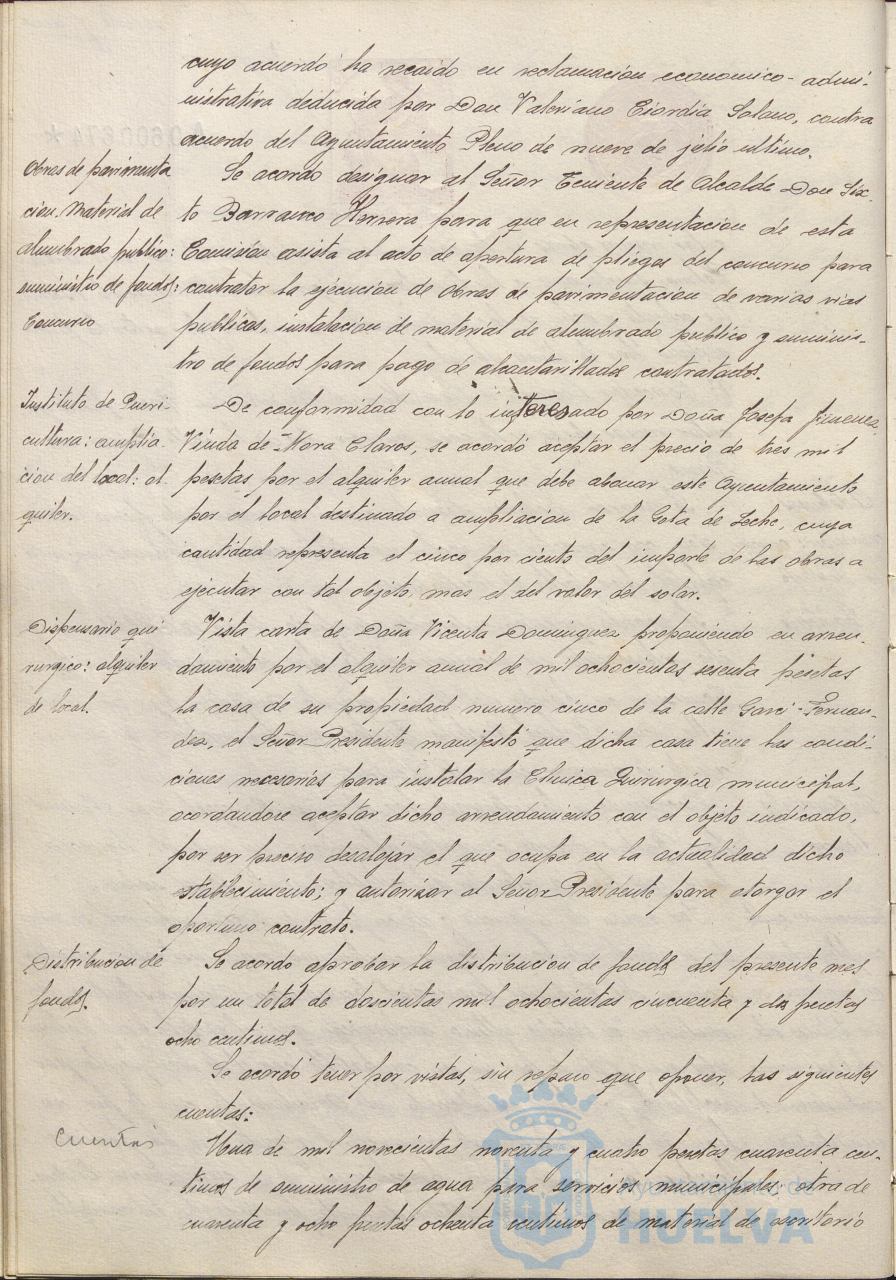 cuyo acuerdo ha recaido en reclamación economico-admi-
nistrativa deducida por Don Valeriano Ciordia Solano, contra
acuerdo del Ayuntamiento Pleno de nueve de julio ultimo.
Obras de pavimenta
cion. Material de
alumbrado publico:
suministro de fondos:
Concurso
Se acordo designar al Señor Teniente de Alcalde Don Six-
to Barranco Herrera para que en representacion de esta
Comisión asista al acto de apertura de pliegos del concurso para
contratar la ejecucion de obras de pavimentacion de varias vias
publicas, instalacion de material de alumbrado publico y suminis-
tro de fondos para pago de alcantarillados contratados.
Instituto de Pueri-
cultura: amplia-
cion del local: al
quiler.
De conformidad con lo interesado por Doña Josefa Jimenez,
Viuda de Mora Claros, se acordó aceptar el precio de tres mil
pesetas por el alquiler anual que debe abonar este Ayuntamiento
por el local destinado a ampliacion de la Gota de Leche, cuya
cantidad representa el cinco por ciento del importe de las obras a
ejecutar con tal objeto, mas el del valor del solar.
Dispensario qui
rurgico: alquiler
de local.
Vista carta de Doña Vicenta Dominguez proponiendo en arren-
damiento por el alquiler anual de mil ochocientas sesenta pesetas
la casa de su propiedad numero cinco de la calle Garci-Fernan-
dez, el Señor Presidente manifestó que dicha casa tiene las condi-
ciones necesarias para instalar la Clinica Quirurgica municipal,
acordandose aceptar dicho arrendamiento con el objeto indicado,
por ser preciso desalojar el que ocupa en la actualidad dicho
establecimiento; y autorizar al Señor Presidente para otorgar el
oportuno contrato.
Distribucion de
fondos.
Se acordo aprobar la distribucion de fondos del presente mes
por un total de doscientas mil ochocientas cincuenta y dos pesetas
ocho centimos.
Se acordó tener por vistas, sin reparo que oponer, las siguientes
cuentas:
Cuentas
Una de mil novecientas noventa y cuatro pesetas cuarenta cen-
timos de suministro de agua para servicios municipales; otra de
cuarenta y ocho pesetas ochenta centimos de material de escritorio
Ayuntamiento de
HUELVA